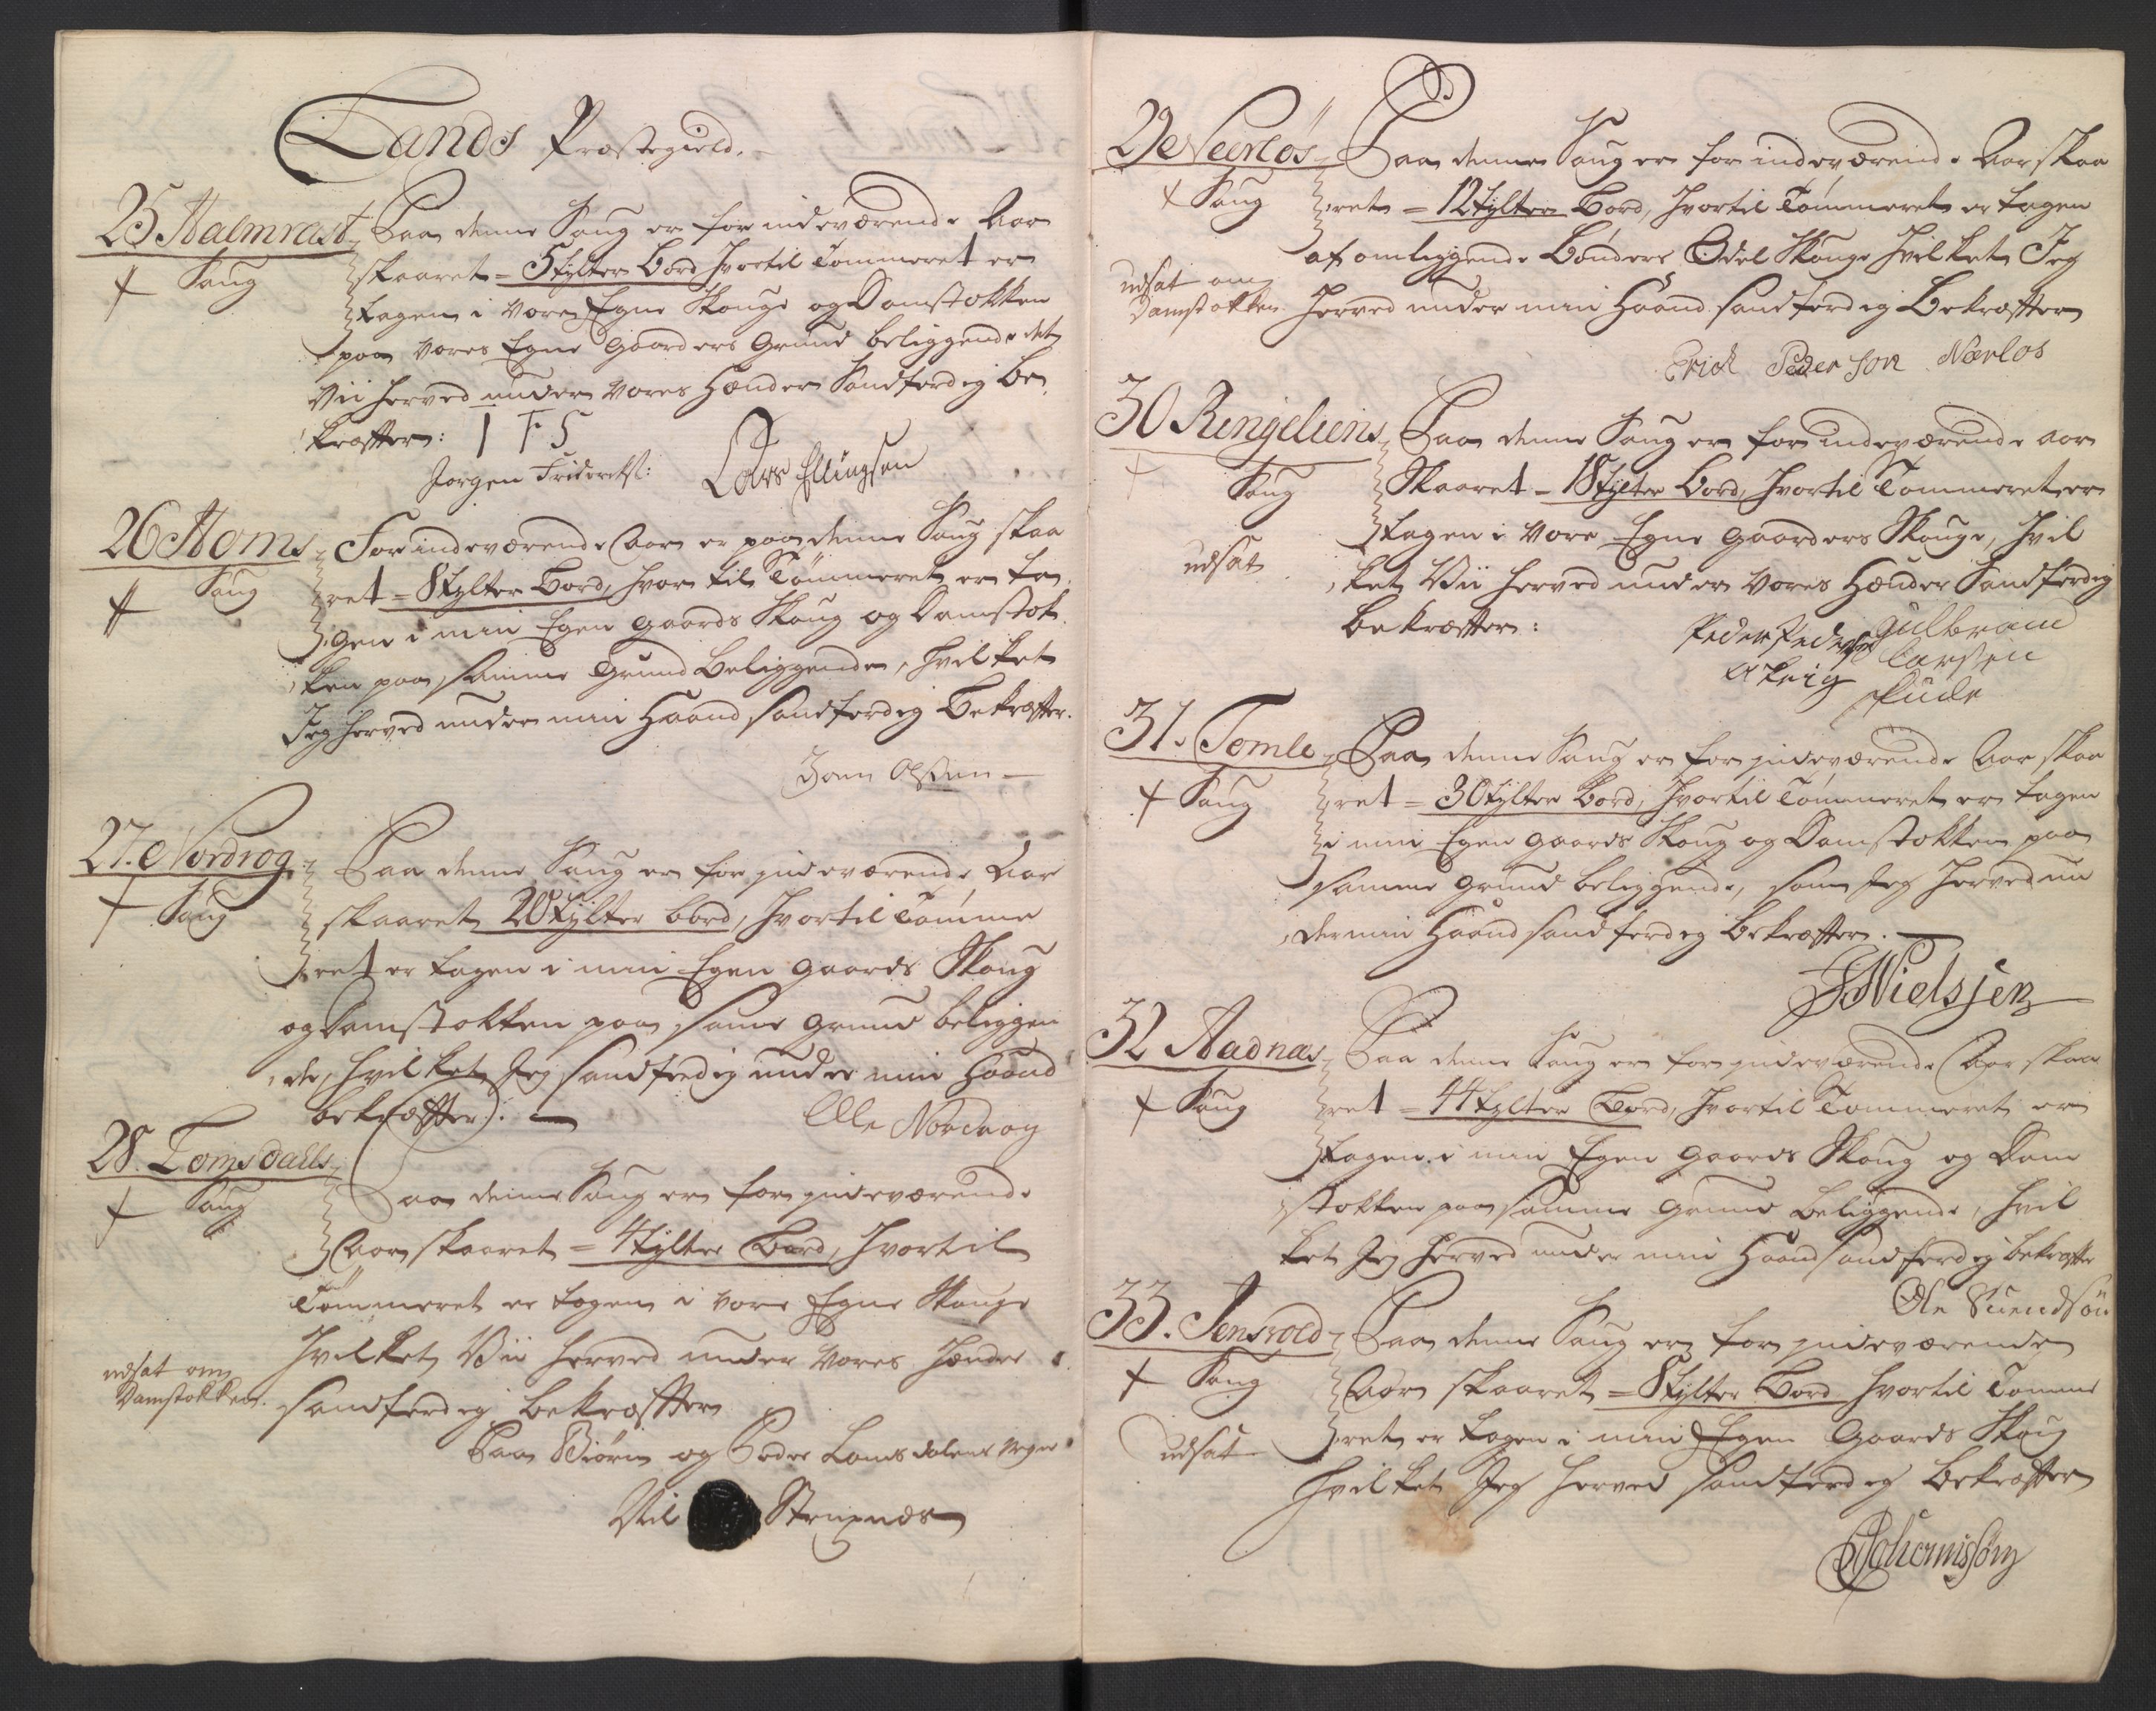 Lands Præstegield.
25 Halmrast
Saug
Paa denne Saug er for indeværende Aar
skaaret = 5 tylter Bord hvortil Tømmeret er
tagen i vore Egne Skouge og Damstokken
paa vores Egne Gaarders Grund beliggende det
Vii herved under vores Hænder Sandferdig be¬
kræffter: I F S
Jorgen Friderichs: Lars Ellingsen
26 Homs
Saug
For indeværende Aar er paa denne Saug skaa
ret = 8 tylter Bord, hvor til Tømmeret er ta¬
gen i min Egen Gaards Skoug og Damstok¬
ken paa samme Grund Beliggende, hvilket
Jeg herved under min Haand sandferdig Bekræffter.
Joen Olssen
27. Nordrog
Saug
Paa denne Saug er for indeværende Aar
skaaret 20 tylter bord, hvortil Tømme
ret er tagen i min Egen gaards Skoug
og Damstokken paa samme grund beliggen
de, hvilket Jeg sandferdig under min Haand
bekræffter.
Olle Nordrog
28. Lomsdalls
Saug
Paa denne Saug er for indeværende
Aar skaaret = 4 tylter Bord, hvortil
Tømmeret er tagen i vore Egne Skouge
hvilket Vii herved under vores Hænder
udsat om
Damstokken.
sandferdig bekræffter
Paa Biørn og Peder Lomsdalens vegne
Nil Strupnæs
29 Neerløs
Saug
Paa denne Saug er for indeværende Aar skaa
ret = 12 tylter Bord, hvortil Tømmeret er tagen
af omliggende Bønders Odel Skouge hvilket Jeg
udsat om
Damstokken
herved under min Haand sandferdig Bekræffter
Erich Pedersøn Nærløs
30 Ringeliens
Saug
udsat
Paa denne Saug er for indeværende aar
Skaaret = 18 tylter Bord, hvortil Tømmeret er
tagen i vore Egne gaarders Skouge, hvil
ket Vii herved under vores Hænder Sandferdig
bekræffter:
Peder Peders
Gulbrand
Larssen
31. Tomle
Saug
Paa denne Saug er for indeværende Aar skaa
ret = 30 tylter Bord, hvortil Tømmeret er tagen
i min Egen gaards Skoug og Damstokken paa
samme grund beliggende, som Jeg herved un
der min Haand sandferdig bekræffter.
Nielssen
32 Aadnæs
Saug
Paa denne Saug er for indeværende Aar skaa
ret = 44 tylter Bord, hvortil Tømmeret er
tagen i min Egen gaards Skoug og Dam
stokken paa samme grund beliggende, hvil
ket Jeg herved under min Haand sandferdig bekræffte
Ole Suendsøn
33. Jensvold
Saug
udsat
Paa denne Saug er for indeværende
Aar skaaret = 8 tylter Bord hvortil Tømme
ret er tagen i min Egen Gaards Skoug
hvilket Jeg herved sandferdig bekræffter
Johannissøn